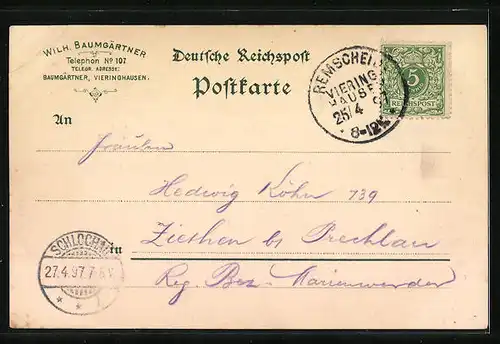 WILH. BAUMGÄRTNER
Telephon No 107
TELEGR. ADRESSE:
BAUMGÄRTNER, VIERINGHAUSEN.
Deutsche Reichspost
Postkarte
REMSCHEID
VIERING
HAUSEN
25/4 97
8-12V.
5
REICHSPOST
An
Fräulein
Hedwig Köhn 739
in Ziethen b Prechlau
Reg. Bez. Marienwerder
SCHLOCHAU
27.4.97.7-8V.